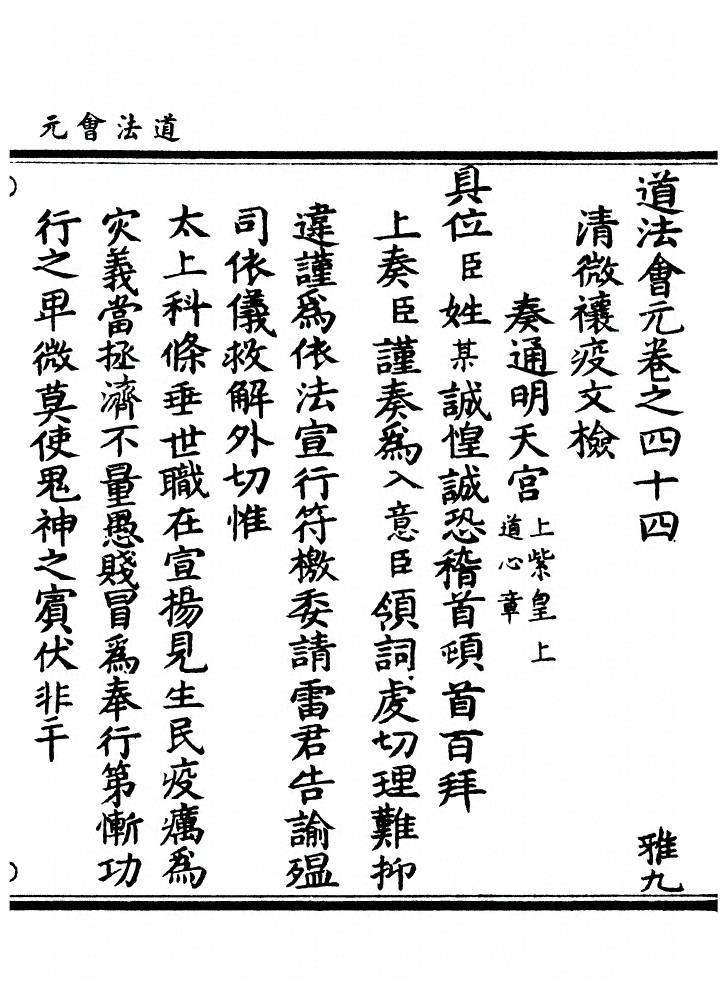 道法會元
道法會元卷之四十四 雅九
清微禳疫文檢
奏通明天宮 上紫皇上道心章
具位臣姓某誠惶誠恐稽首頓首百拜
上奏臣謹奏為入意臣領詞虔切理難抑
違謹為依法宣行符檄委請雷君告諭瘟
司依儀救解外切惟
太上科條垂世職在宣揚見生民疫癘為
灾義當拯濟不量愚賤冒為奉行第慚功
行之卑微莫使鬼神之賓伏非干